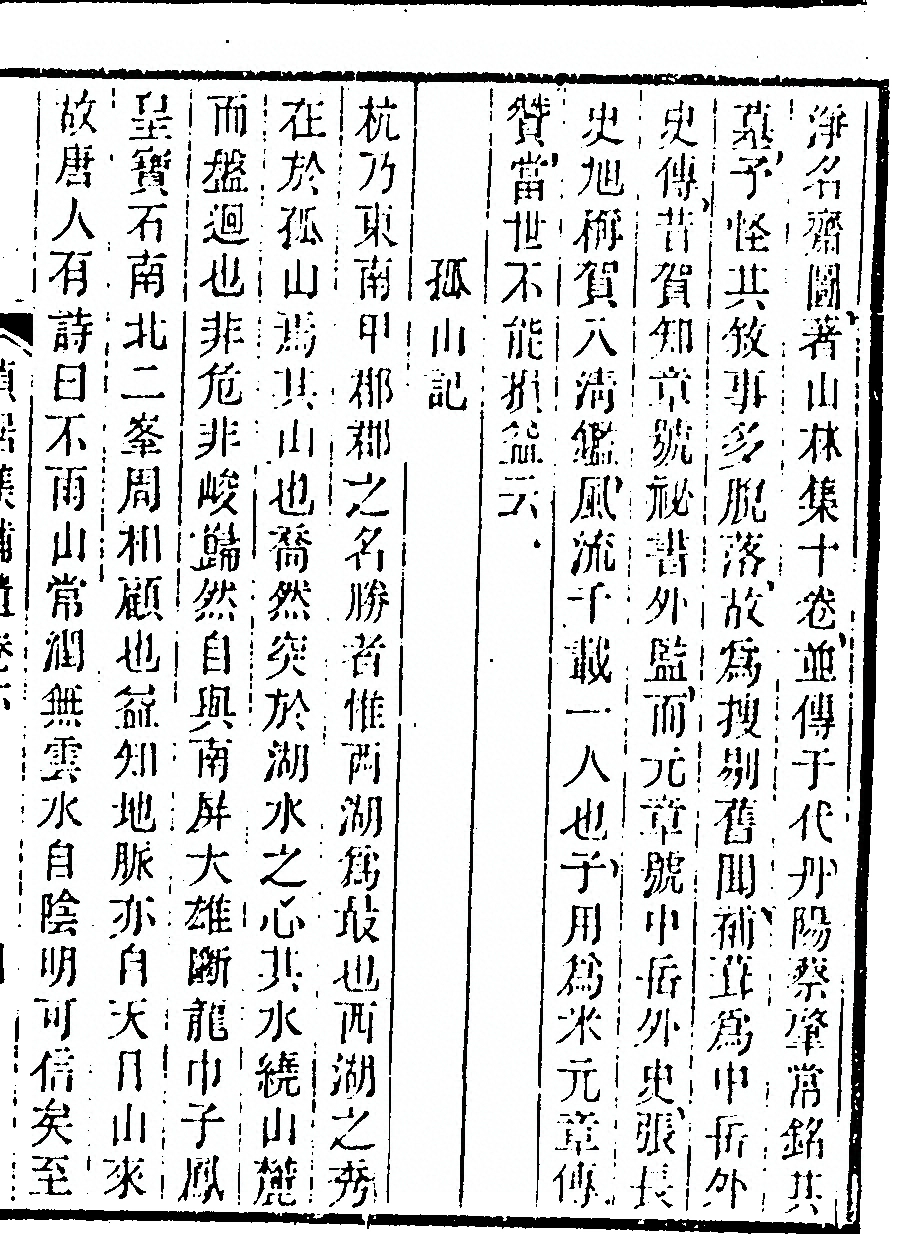 淨名齋圖著山林集十卷並傳于代丹陽蔡肇常銘其
墓予怪其敘事多脫落故爲搜剔舊聞補葺爲中岳外
史傳昔賀知章號祕書外監而元章號中岳外史張長
史旭稱賀八淸鑑風流千載一人也予用爲米元章傳
贊當世不能損益云
孤山記
杭乃東南甲郡郡之名勝者惟西湖爲最也西湖之秀
在於孤山焉其山也喬然突於湖水之心其水繞山麓
而盤迴也非危非峻巋然自與南屏大雄斷龍巾子鳳
呈寶石南北二峯周相顧也益知地脈亦自天目山來
故唐人有詩曰不雨山常潤無雲水自陰明可信矣至
貞居集補遺卷下